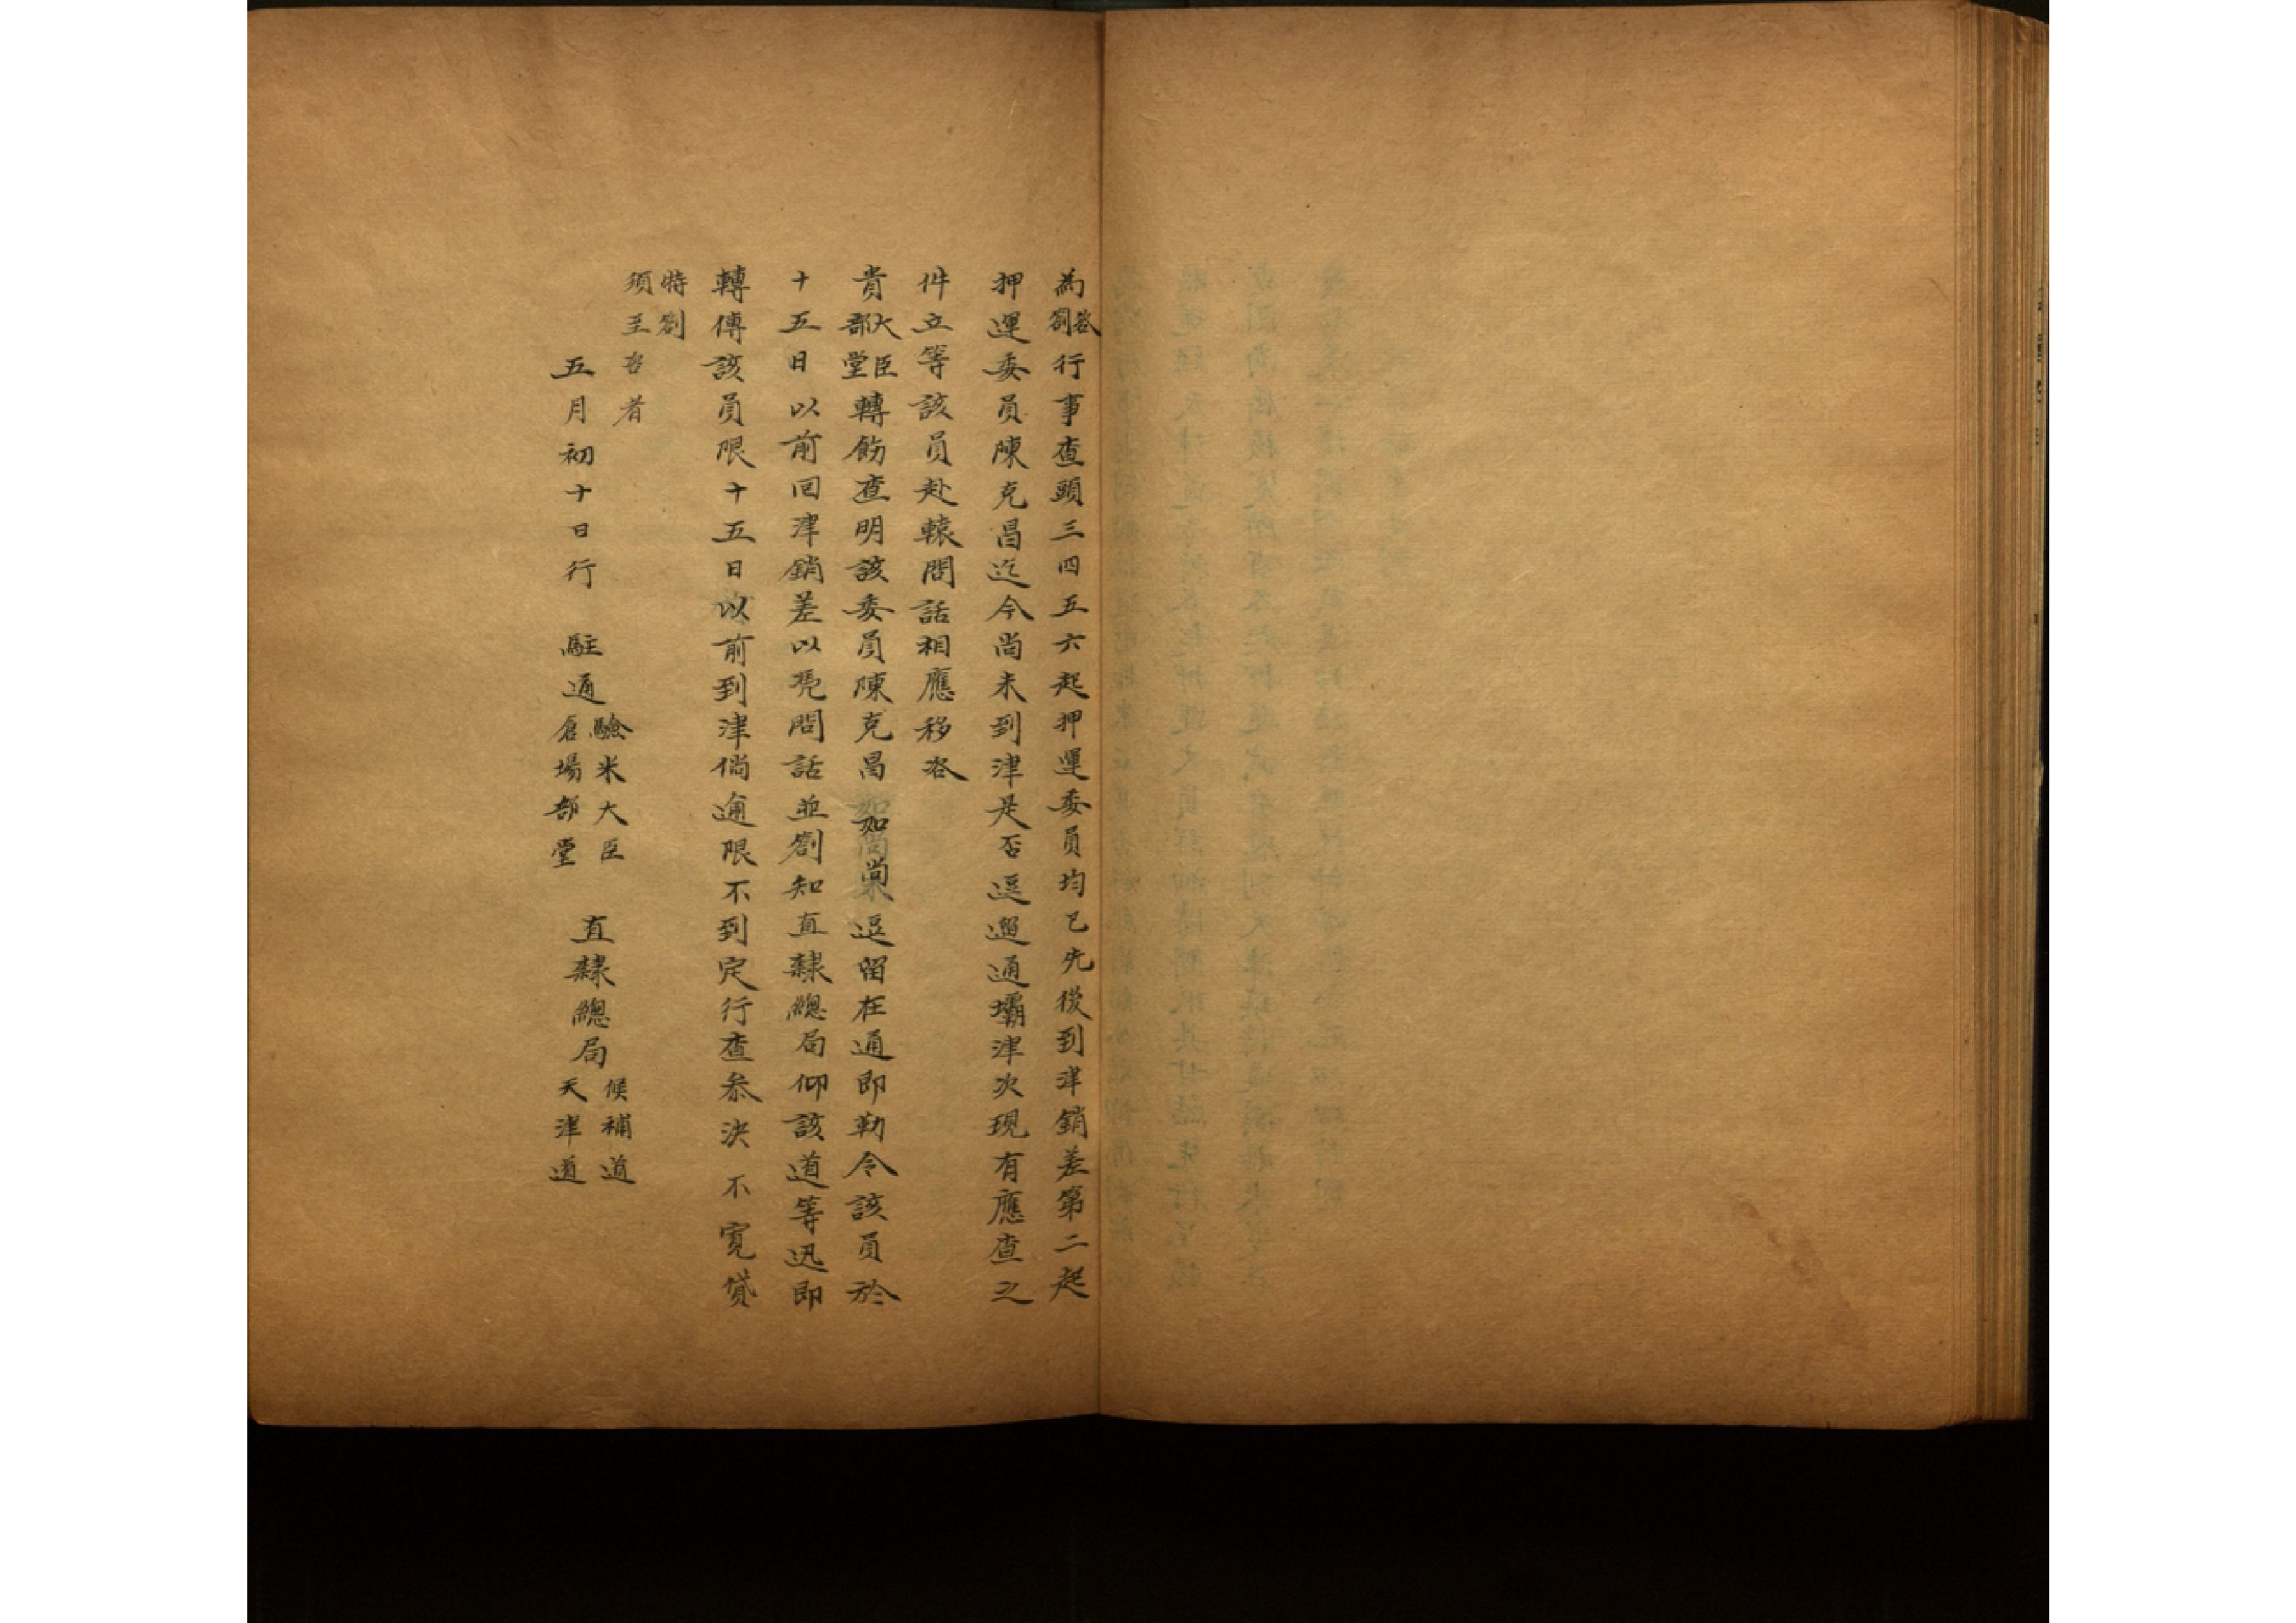 為咨劄行事查頭三四五六起押運委員均已先後到津銷差第二起
押運委員陳克昌迄今尚未到津是否逗遛通壩津次現有應查之
件立等該員赴轅問話相應移咨
貴大臣部堂轉飭查明該委員陳克昌如尚逗留在通即勒令該員於
十五日以前回津銷差以凭問話並劄知直隸總局仰該道等迅即
轉傳該員限十五日以前到津倘逾限不到定行查叅決不寬貸
特劄
須至咨者
五月初十日行 駐通驗米大臣倉場部堂 直隸總局候補道天津道